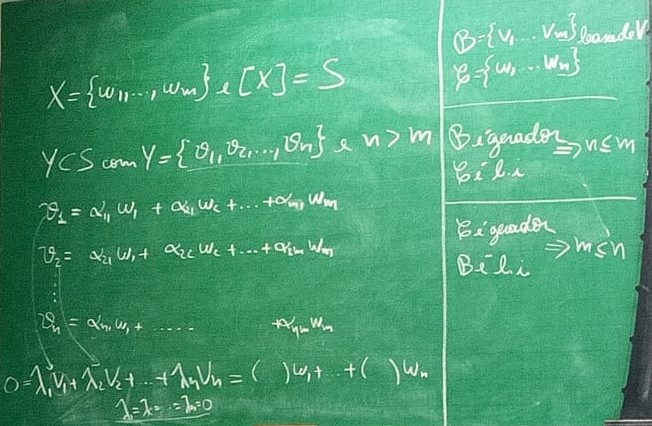 X = {w₁, ..., wₘ} e [X] = S
Y ⊂ S com Y = {v₁, v₂, ..., vₙ} e n > m
v₁ = α₁₁ w₁ + α₂₁ w₂ + ... + αₘ₁ wₘ
v₂ = α₂₁ w₁ + α₂₂ w₂ + ... + α₂ₘ wₘ
⋮
vₙ = αₙ₁ w₁ + ..... + αₙₘ wₘ
0 = λ₁v₁ + λ₂v₂ + ... + λₙvₙ = ( )w₁ + ... + ( )wₘ
λ₁ = λ = ... = λₙ = 0
B = {v₁ ... vₘ} base de V
C = {w₁ ... wₙ}
B é gerador
C é l.i ⇒ n ≤ m
C é gerador
B é l.i ⇒ m ≤ n